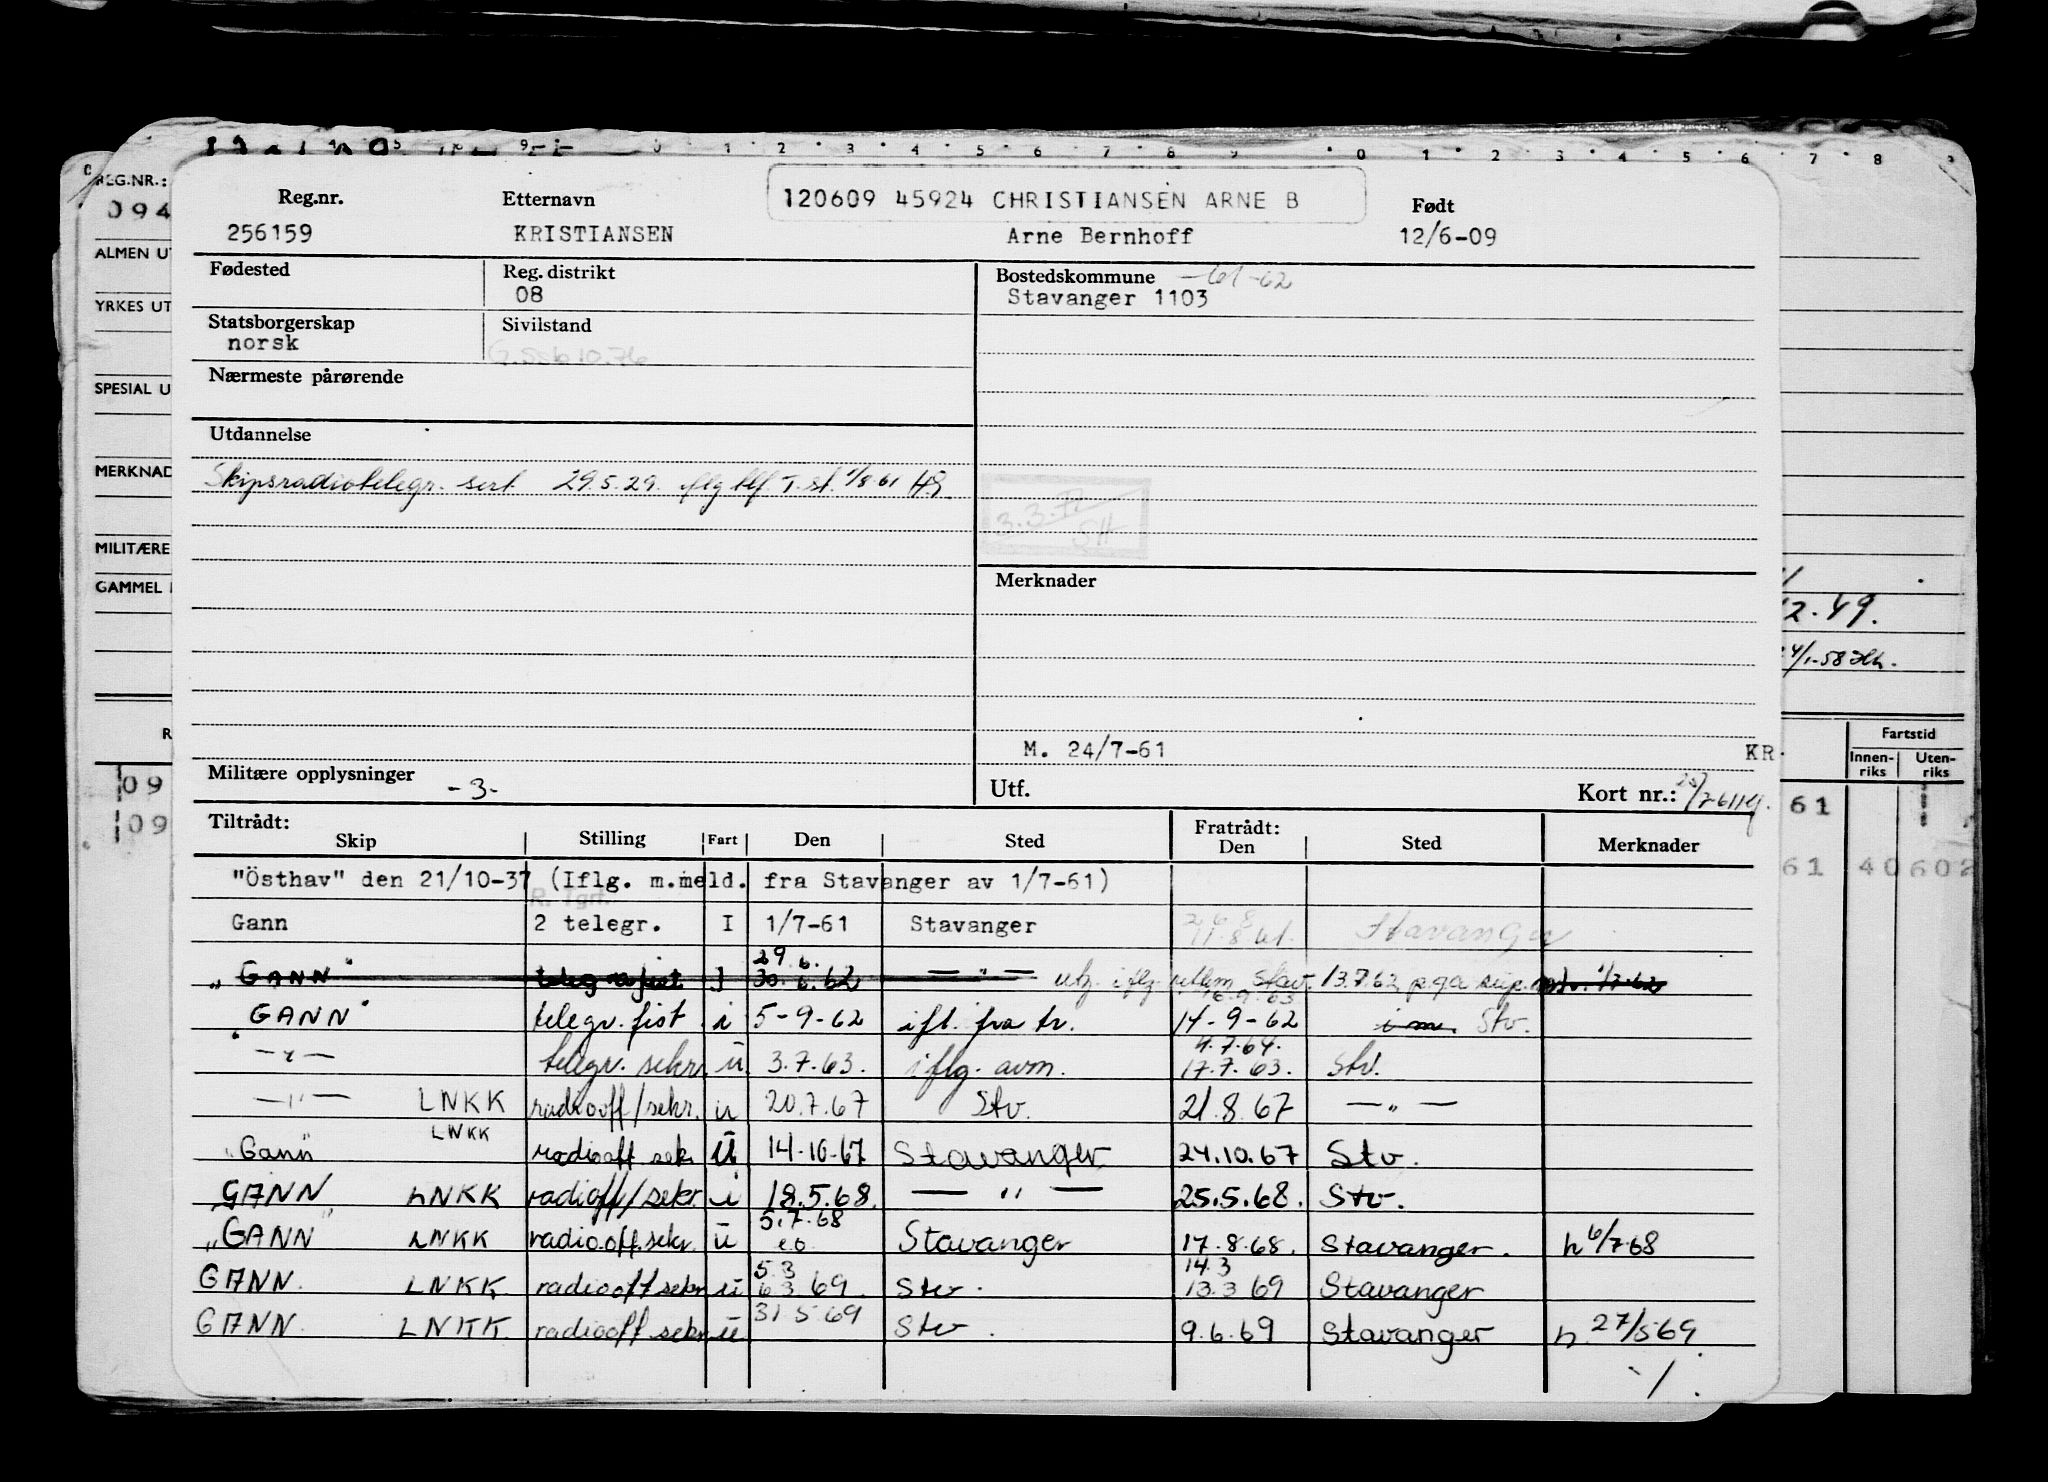 1 2 3 4 5 6 7 8 9 0 1 2 3 4 5 6 7 8
REG.NR.:
094
ALMEN UT
YRKES UT
SPESIAL U
MERKNAD
MILITÆRE
GAMMEL
09
09
Reg.nr. Etternavn 120609 45924 CHRISTIANSEN ARNE B Født
256159 KRISTIANSEN Arne Bernhoff 12/6-09
Fødested Reg. distrikt Bostedskommune -61-62
08 Stavanger 1103
Statsborgerskap Sivilstand
norsk
Nærmeste pårørende
Utdannelse
Skipsradiotelegr. sert 29.5.29. iflg tlf. T. st. 1/8-61 HG
3.3.72
SH
Merknader
2.49.
4/1-58
M. 24/7-61 KR.
Militære opplysninger -3- Utf. Kort nr.:
Fartstid
Innen-riks Uten-riks
61
61 40602
Tiltrådt: Fratrådt:
Skip Stilling Fart Den Sted Den Sted Merknader
"Östhav" den 21/10-37 (Iflg. m.meld. fra Stavanger av 1/7-61)
R. Tgrf.
Gann 2 telegr. I 1/7-61 Stavanger 11.8.61. Stavanger
29.6.
"GANN" telegrafist I 30.6.62 — " — utg. iflg. Stav. 13.7.62 p.g.a
"GANN" telegr.fist i 5-9-62 ifl. fra tr. 14-9-62 Stv.
4.7.64.
— " — telegr. sekr. u 3.7.63. iflg. avm. 17.7.63. Stv.
— " — LNKK radiooff/sekr. u 20.7.67 Stv. 21.8.67 — " —
"Gann" LNKK radiooff. sekr u 14.10.67 Stavanger 24.10.67 Stv.
"GANN" LNKK radioff/sekr i 18.5.68. — " — 25.5.68. Stv.
5.7.68
"GANN" LNKK radiooff.sekr. u e.o. Stavanger 17.8.68. Stavanger. h 6/7-68
5.3 14.3
GANN. LNKK. radiooff sekr u 6.3.69. Stv. 13.3.69 Stavanger
GANN. LNKK. radiooff sekr u 31.5.69 Stv. 9.6.69 Stavanger h. 27/5 69
./.